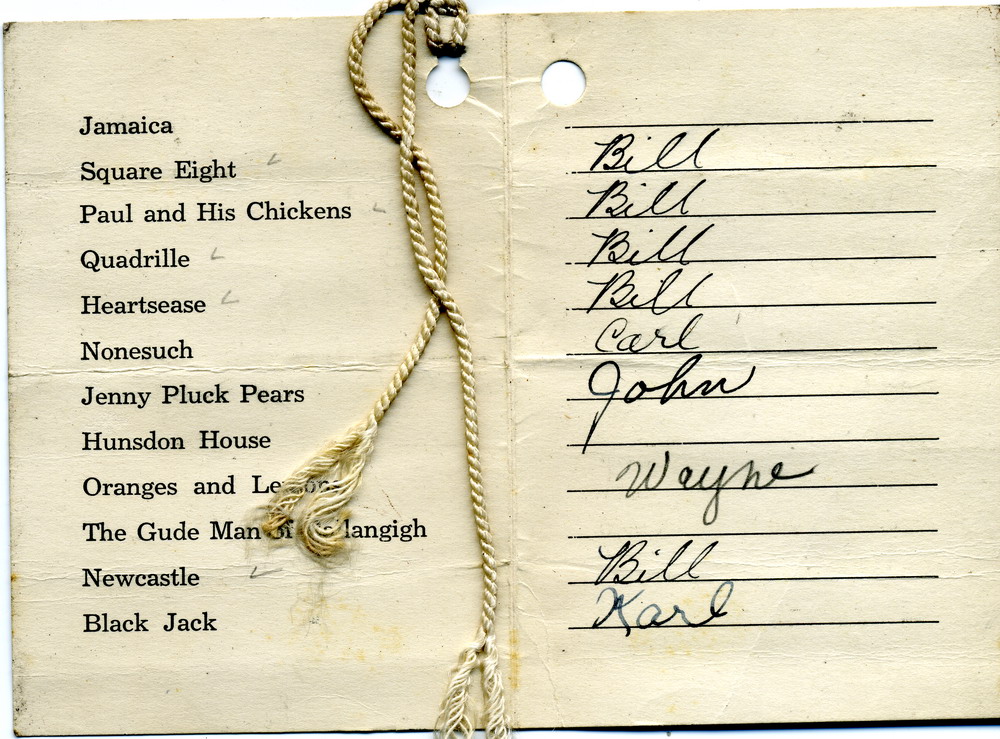 Jamaica
Square Eight Bill
Paul and His Chickens Bill
Quadrille Bill
Heartsease Bill
Nonesuch Carl
Jenny Pluck Pears John
Hunsdon House
Oranges and Lemons Wayne
The Gude Man of
Newcastle Bill
Black Jack Karl